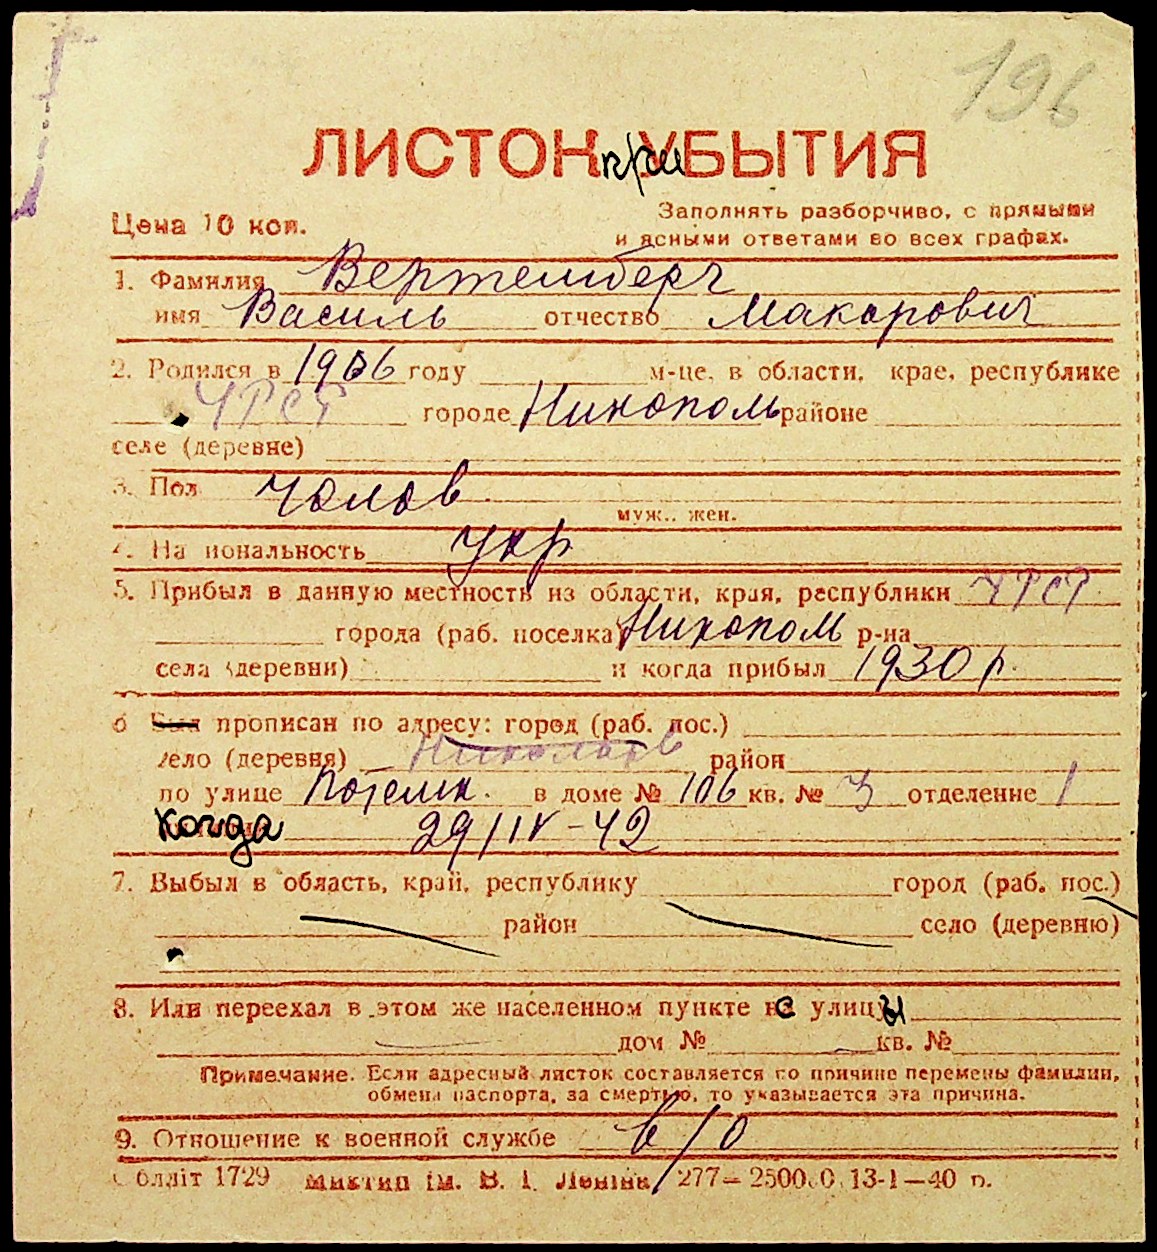 196
ЛИСТОК приБЫТИЯ
Цена 10 коп.
Заполнять разборчиво, с прямыми
и ясными ответами во всех графах.
1. Фамилия Вертемберг
имя Василь отчество Макарович
2. Родился в 1906 году м-це, в области, крае, республике
УРСР городе Никополь районе
селе (деревне)
3. Пол чолов. муж., жен.
4. На иональность Укр
5. Прибыл в данную местность из области, края, республики УРСР
города (раб. поселка) Никополь р-на
села (деревни) и когда прибыл 1930 р.
6 Был прописан по адресу: город (раб. пос.)
село (деревня) Николаев район
по улице Потемк. в доме № 106 кв. № 3 отделение 1
когда 29/IV-42
7. Выбыл в область, край, республику город (раб. пос.)
район село (деревню)
8. Или переехал в этом же населенном пункте с улицы
дом № кв. №
Примечание. Если адресный листок составляется по причине перемены фамилии,
обмена паспорта, за смертью, то указывается эта причина.
9. Отношение к военной службе в/о
Облліт 1729 ім. В. І. Леніна 277—25000 13-1—40 р.